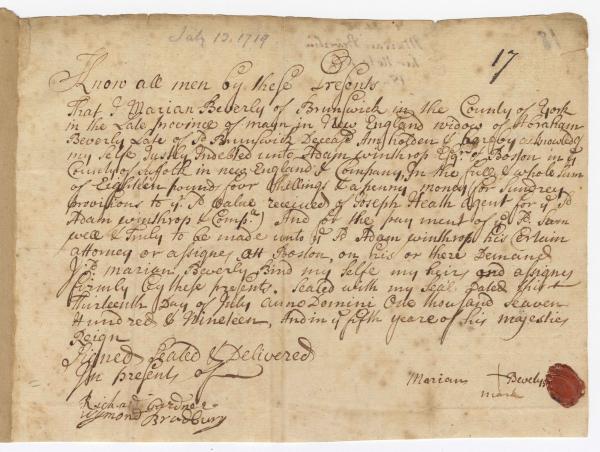 July 13, 1719
17
Know all men by these Presents
That I Marian Beverly of Brunswick in the County of York
in the Late province of mayn in New England widow of Abraham
Beverly Late of sd Brunswick Deceasd Am holden & hereby acknowledg
my selfe Justly Indebted unto Adam winthrop Esqr of Boston in ye
County of Suffolk in new England & Company In the full & whole Sum
of Eighteen pounds four shillings & a penny money for Sundrey
provisions to ye sd Value received of Joseph Heath Agent for ye sd
Adam winthrop & Compa And for the payment of ye sd Sum
well & Truly to be made unto ye sd Adam winthrop his Certain
attorney or assignes att Boston, on his or there Demand
I sd marian Beverly Bind my selfe my heirs and assignes
firmly by these presents. Sealed with my Seal Dated this
Thirteenth Day of July anno Domini One thousand Seaven
Hundred & Nineteen, And in ye fifth yeare of his majesties
Reign
Signed Sealed & Delivered
In presents of
Marian + Beverly
mark
Richard Gardner
Wymond Bradbury